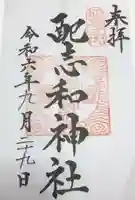 奉拝
配志和神社
令和六年九月二十九日